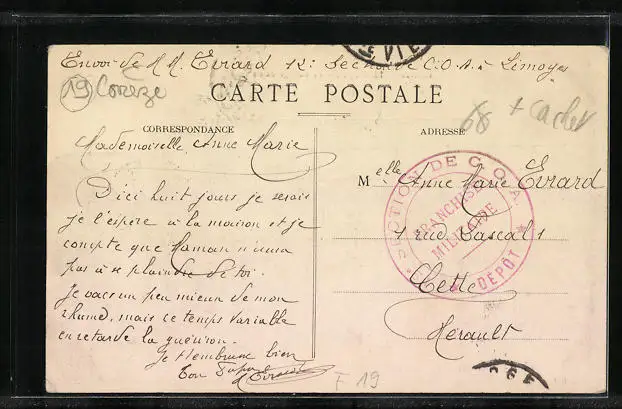 Envoi de M. M. Evrard 12e Section C.O.A. à Limoges
19 Corrèze
CARTE POSTALE
68 + cachet
CORRESPONDANCE
ADRESSE
Mademoiselle Anne Marie
D'ici huit jours je serais
je l'espère à la maison et je
compte que Maman n'aura
pas à se plaindre de toi.
Je vais un peu mieux de mon
rhume, mais ce temps variable
en retarde la guérison.
Je t'embrasse bien
Ton Papa
Evrard
Melle Anne Marie Evrard
1 rue Pascal 1
Cette
Hérault
SECTION DE C.O.A.
FRANCHISE
MILITAIRE
DÉPÔT
F 19